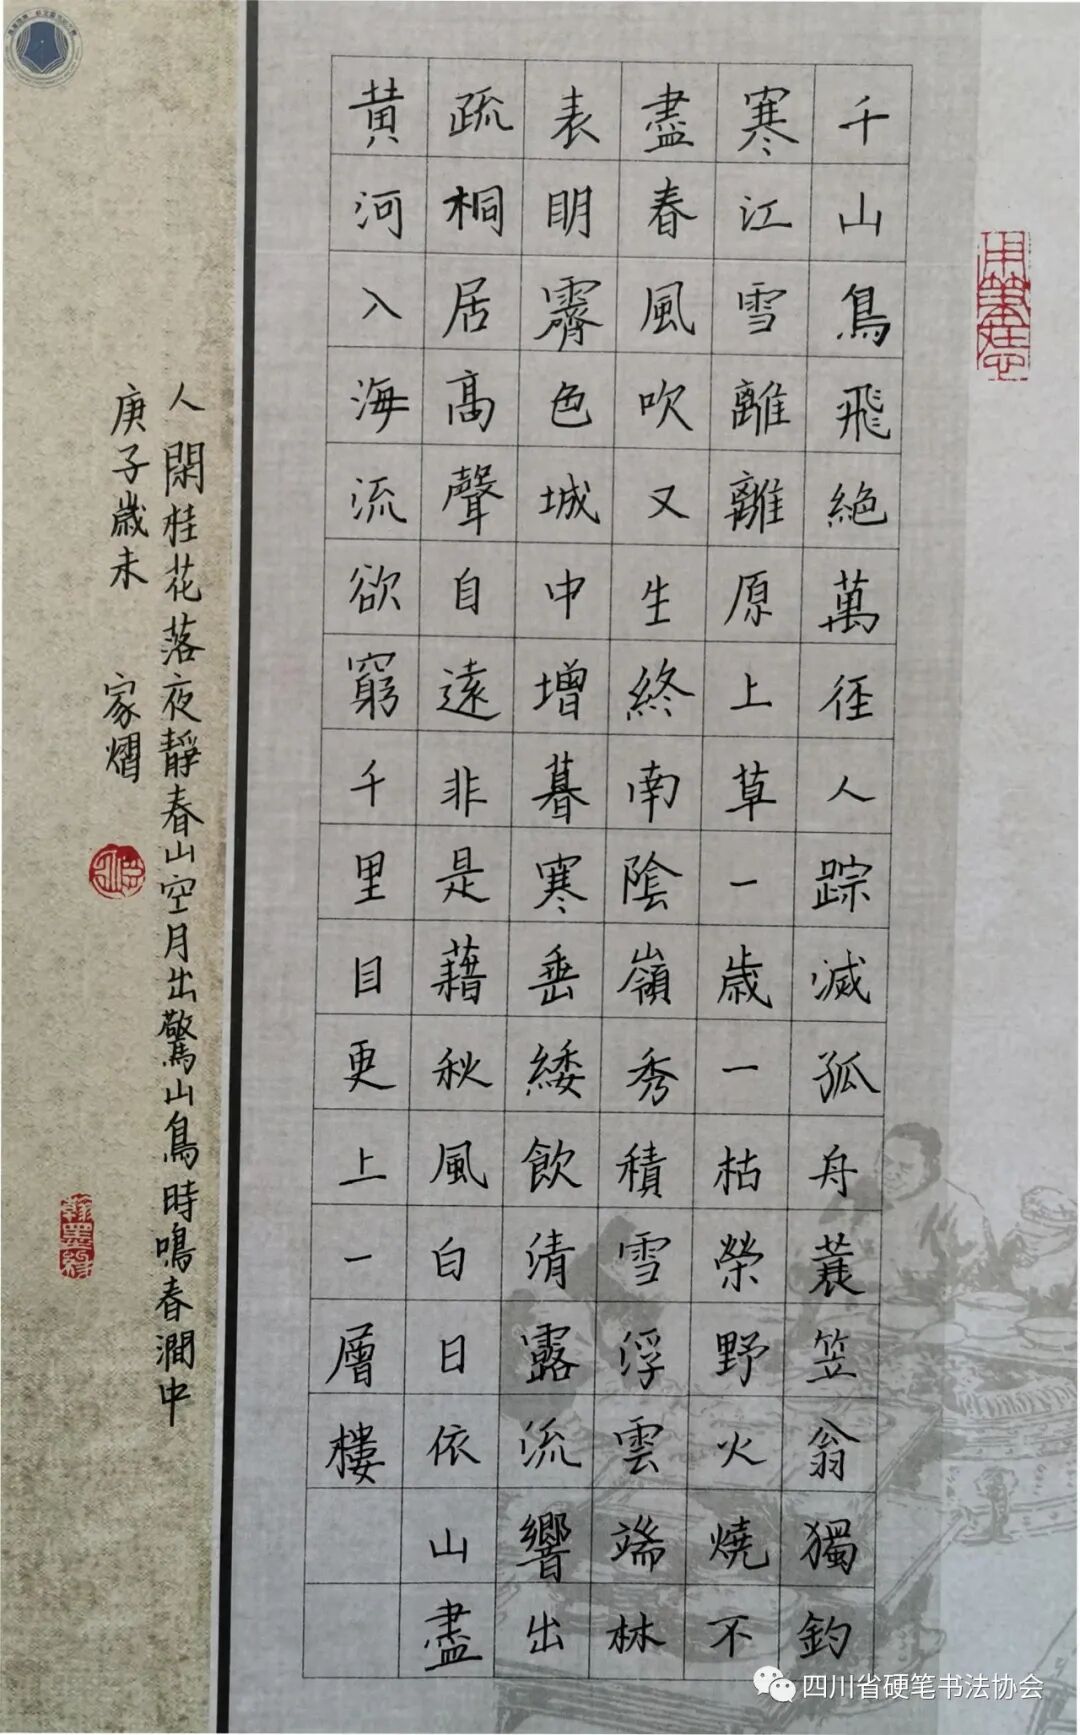 千山鳥飛絶萬徑人踪滅孤舟蓑笠翁獨釣
寒江雪離離原上草一歲一枯榮野火燒不
盡春風吹又生終南陰嶺秀積雪浮雲端林
表明霽色城中增暮寒垂緌飲清露流響出
疏桐居高聲自遠非是藉秋風白日依山盡
黄河入海流欲窮千里目更上一層樓
人閑桂花落夜靜春山空月出驚山鳥時鳴春澗中
庚子歲末 家熠
翰墨緣
四川省硬笔书法协会